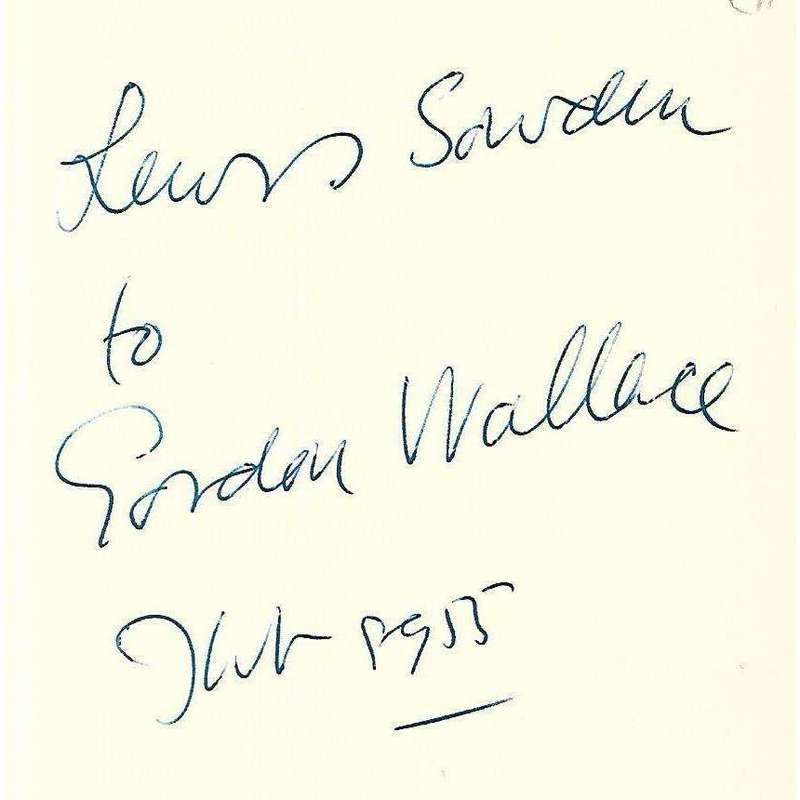 Lewis Sowden
to
Gordon Wallace
Jhb 1955